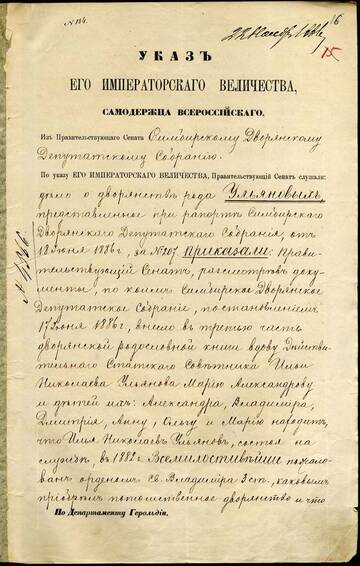 № 114.
22 Нояб. 1886
16
15
УКАЗЪ
ЕГО ИМПЕРАТОРСКАГО ВЕЛИЧЕСТВА,
САМОДЕРЖЦА ВСЕРОССІЙСКАГО,
Изъ Правительствующаго Сената Симбирскому Дворянскому
Депутатскому Собранію.
По указу ЕГО ИМПЕРАТОРСКАГО ВЕЛИЧЕСТВА, Правительствующій Сенатъ слушали:
дѣло о дворянствѣ рода Ульяновыхъ,
представленное при рапортѣ Симбирскаго
Дворянскаго Депутатскаго Собранія, отъ
18 Іюня 1886 г., за № 207. Приказали: Прави-
тельствующій Сенатъ, разсмотрѣвъ доку-
менты, по коимъ Симбирское Дворянское
Депутатское Собраніе, постановленіемъ
17 Іюня 1886 г., внесло въ третью часть
дворянской родословной книги вдову Дѣйстви-
тельнаго Статскаго Совѣтника Ильи
Николаева Ульянова Марію Александрову
и дѣтей ихъ: Александра, Владиміра,
Дмитрія, Анну, Ольгу и Марію находитъ,
что Илья Николаевъ Ульяновъ, состоя на
службѣ, въ 1882 г. Всемилостивѣйше пожало-
ванъ орденомъ Св. Владиміра 3 ст., каковымъ
пріобрѣлъ потомственное дворянство и что
По Департаменту Герольдіи.